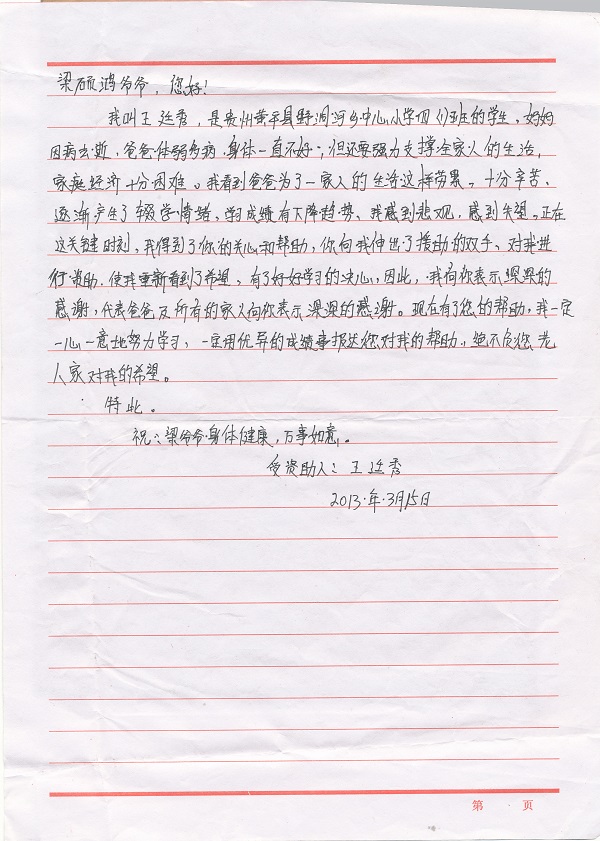 梁硕鸿爷爷，您好！
我叫王廷秀，是贵州黄平县野洞河乡中心小学四（1）班的学生，妈妈
因病去逝，爸爸体弱多病，身体一直不好，但还要强力支撑全家人的生活，
家庭经济十分困难。我看到爸爸为了一家人的生活这样劳累，十分辛苦、
逐渐产生了辍学情绪、学习成绩有下降趋势、我感到悲观，感到失望。正在
这关键时刻，我得到了你的关心和帮助，你向我伸出了援助的双手、对我进
行资助，使我重新看到了希望，有了好好学习的决心，因此，我向你表示深深的
感谢，代表爸爸及所有的家人向你表示深深的感谢。现在有了您的帮助，我一定
一心一意地努力学习，一定用优异的成绩来报达您对我的帮助，绝不负您老
人家对我的希望。
特此。
祝：梁爷爷身体健康，万事如意。
受资助人：王廷秀
2013.年.3月15日
第 页